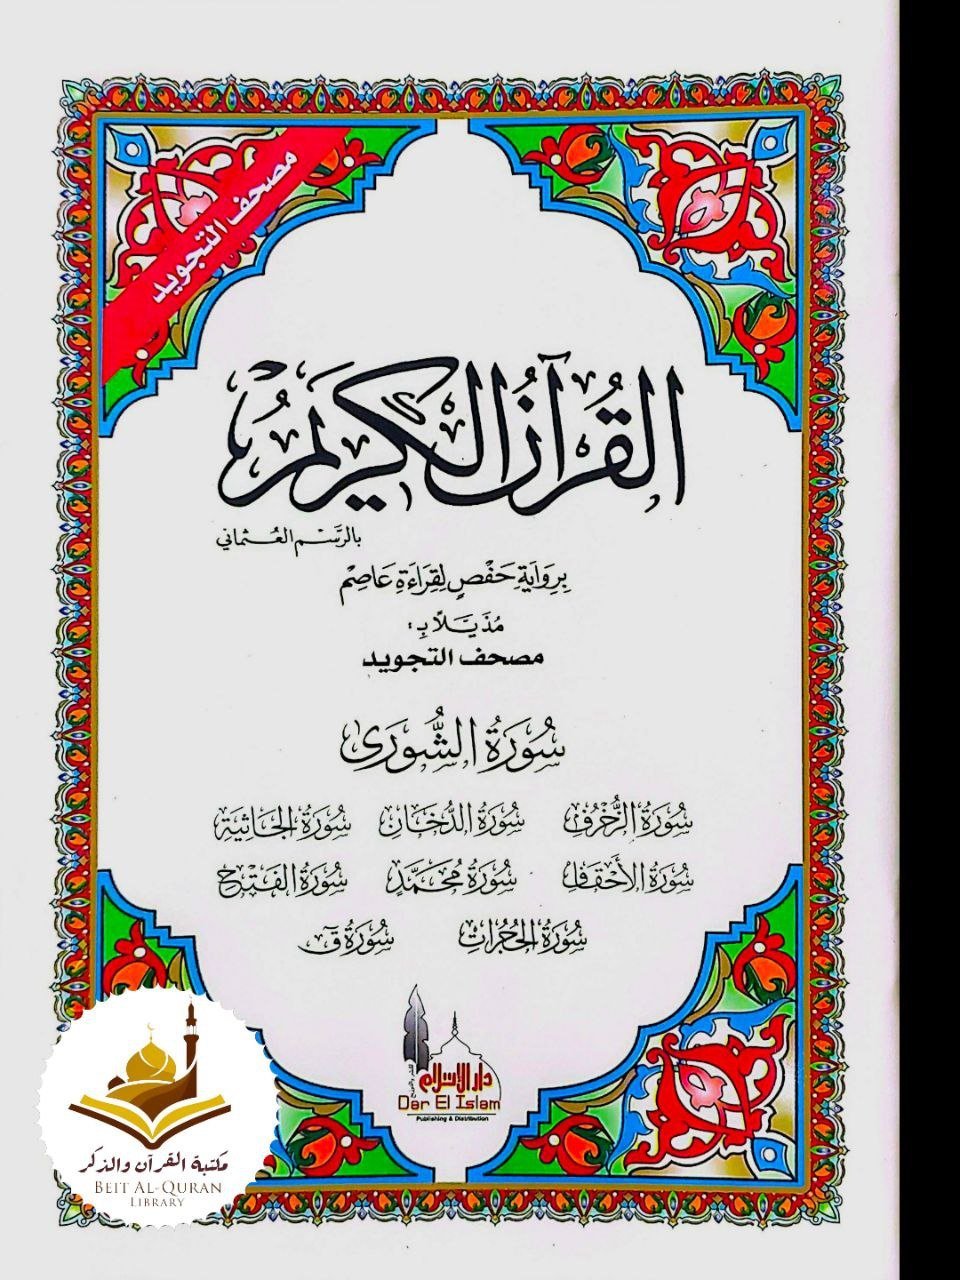 مصحف التجويد
القرآن الكريم
بالرَّسْم العُثماني
بِرِوَايَةِ حَفْصٍ لِقِرَاءَةِ عَاصِمْ
مُذَيَّلاً بِ:
مصحف التجويد
سُورَةُ الشُّورَى
سُورَةُ الزُّخْرُفِ سُورَةُ الدُّخَانِ سُورَةُ الجَاثِيَةِ
سُورَةُ الأَحْقَافِ سُورَةُ مُحَمَّدٍ سُورَةُ الفَتْحِ
سُورَةُ الحُجُرَاتِ سُورَةُ قٓ
دار الإسلام
للنشر والتوزيع
Dar El Islam
Publishing & Distribution
مكتبة القرآن والذكر
BEIT AL-QURAN
LIBRARY